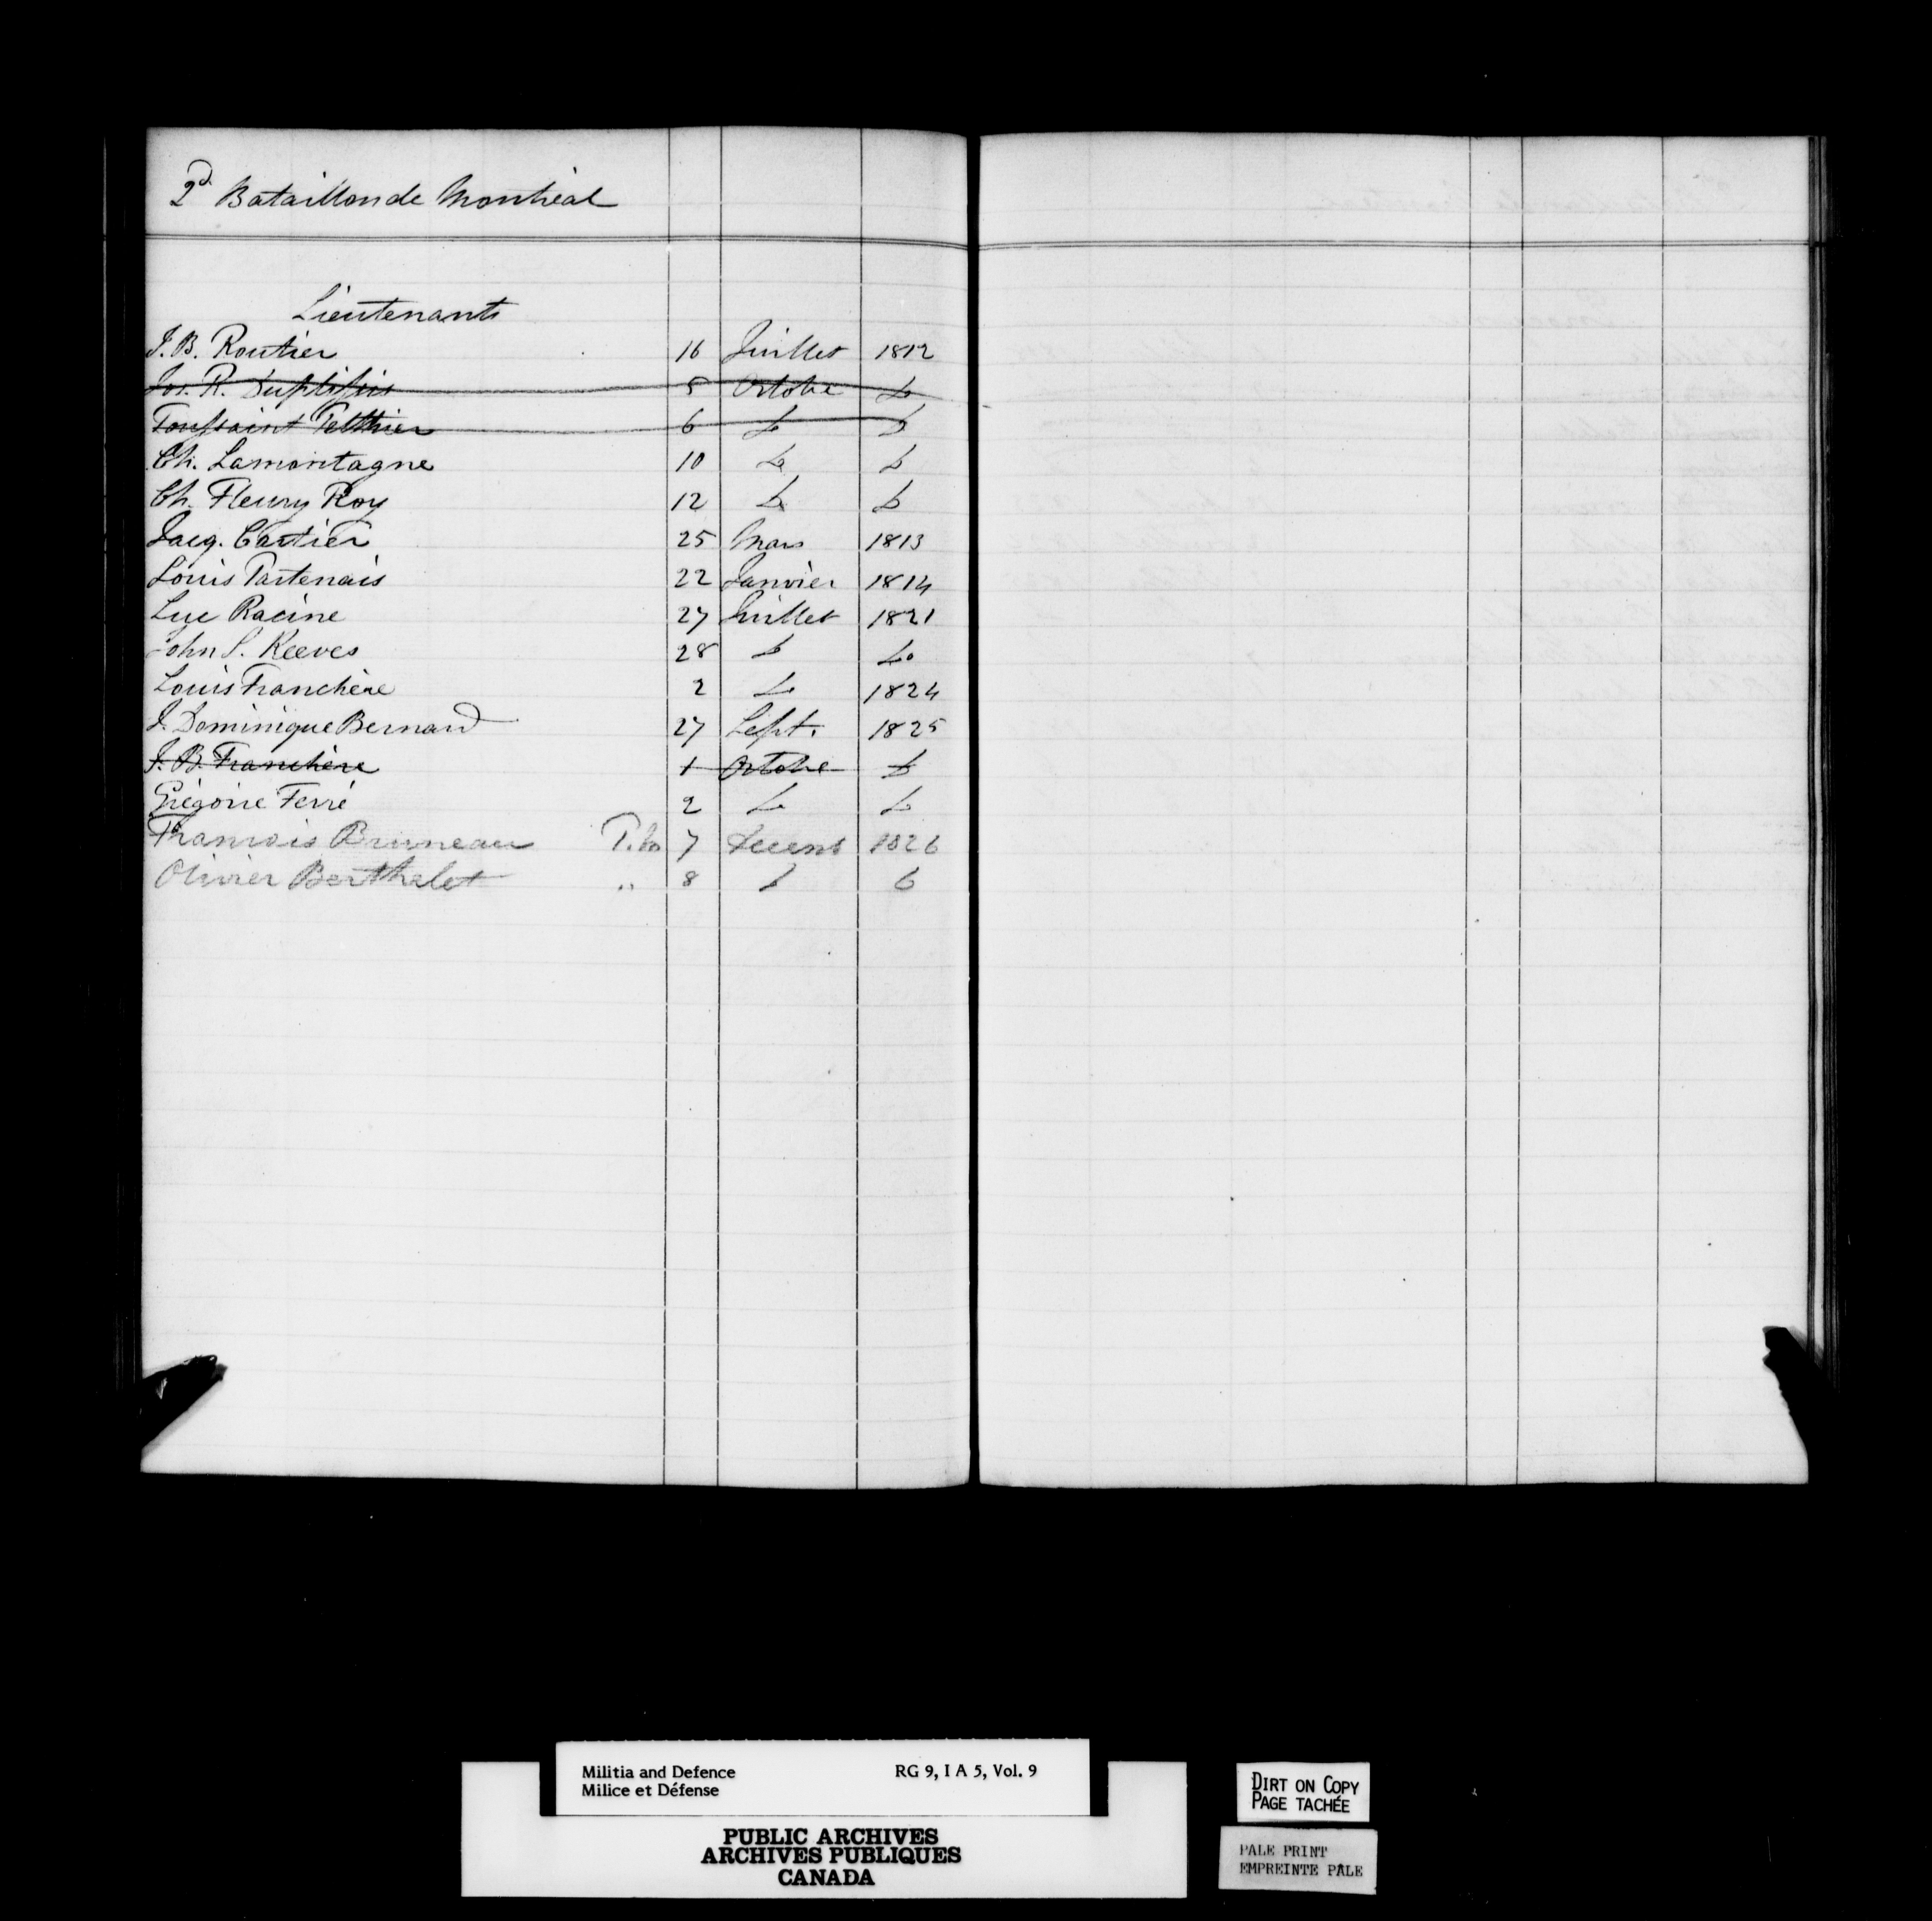 2d Bataillon de Montréal
Lieutenants
J. B. Routier 16 Juillet 1812
Jos. R. Duplessis 5 Octobre do
Toussaint Pelthier 6 do do
Ch. Lamontagne 10 do do
Ch. Fleury Roy 12 do do
Jacq. Cartier 25 Mars 1813
Louis Partenais 22 Janvier 1814
Luc Racine 27 Juillet 1821
John S. Keeves 28 do do
Louis Franchère 2 do 1824
J. Dominique Bernard 27 Sept. 1825
J. B. Franchère 1 Octobre do
Grégoire Ferré 2 do do
François Bruneau 7 Decemb 1826
Olivier Berthelet " 8 do do
Militia and Defence RG 9, I A 5, Vol. 9
Milice et Défense
PUBLIC ARCHIVES
ARCHIVES PUBLIQUES
CANADA
DIRT ON COPY
PAGE TACHÉE
PALE PRINT
EMPREINTE PÂLE